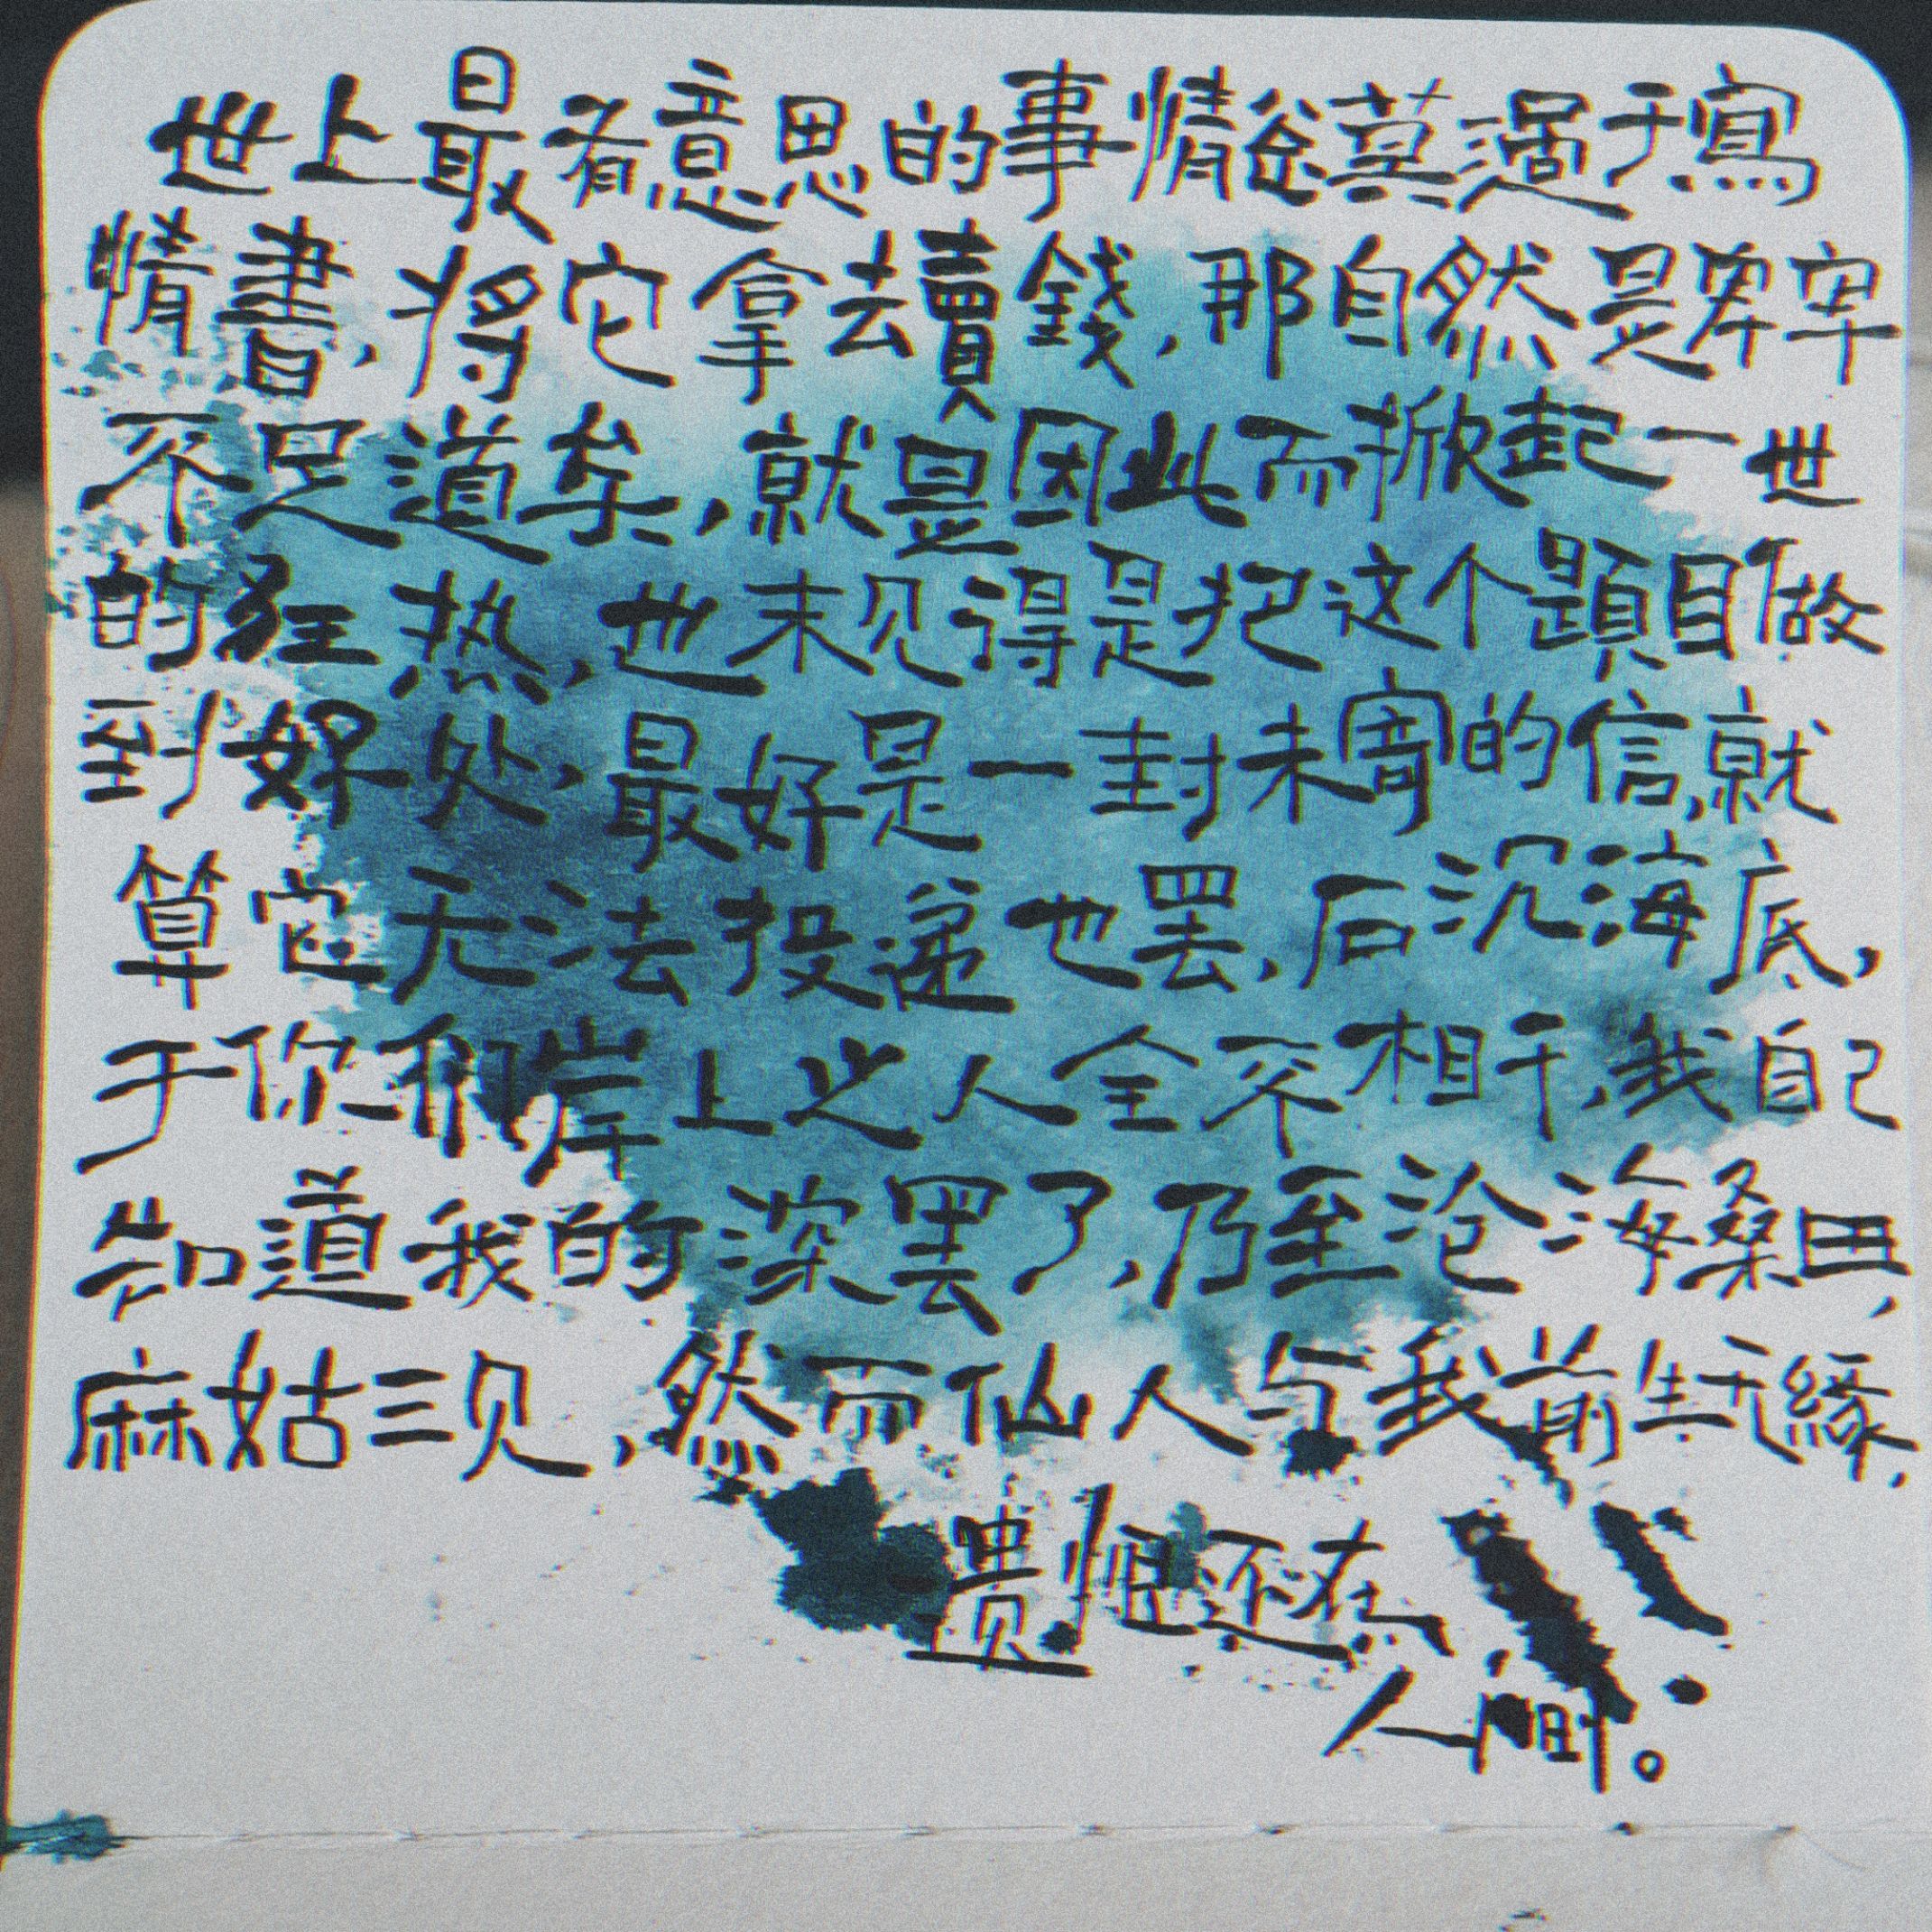 世上最有意思的事情盆莫過于寫
情書,將它拿去賣錢,那自然是卑卑
不足道矣,就是因此而掀起一世
的狂热,也未见得是把这个題目做
到好处,最好是一封未寄的信,就
算它无法投递也罢,石沉海底,
于你和岸上之人全不相干,我自己
知道我的深罢了,乃至沧海桑田,
麻姑三见,然而仙人与我前生无緣,
遗恨还在
人间。